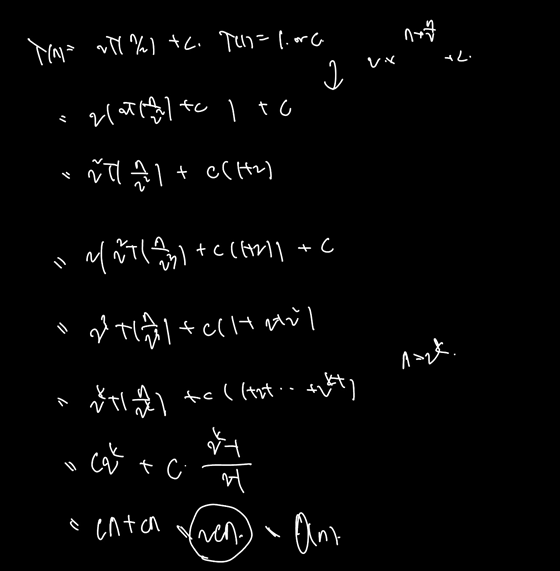 T(n) = 2T(n/2) + c. T(1) = 1. or c
↓
2 × n→n/2 + c.
= 2(2T(n/2²) + c) + c
= 2²T(n/2²) + c(1+2)
= 2(2²T(n/2³) + c(1+2)) + c
= 2³T(n/2³) + c(1+2+2²)
n=2^k.
= 2^k T(n/2^k) + c(1+2+...+2^(k-1))
= c2^k + c · (2^k-1)/(2-1)
= cn + cn = 2cn. = O(n).